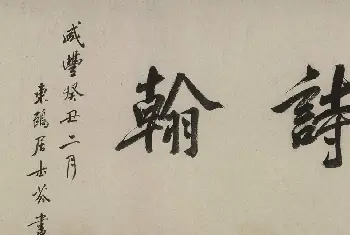 詩翰
咸豐癸丑二月
東鶴居士芬書